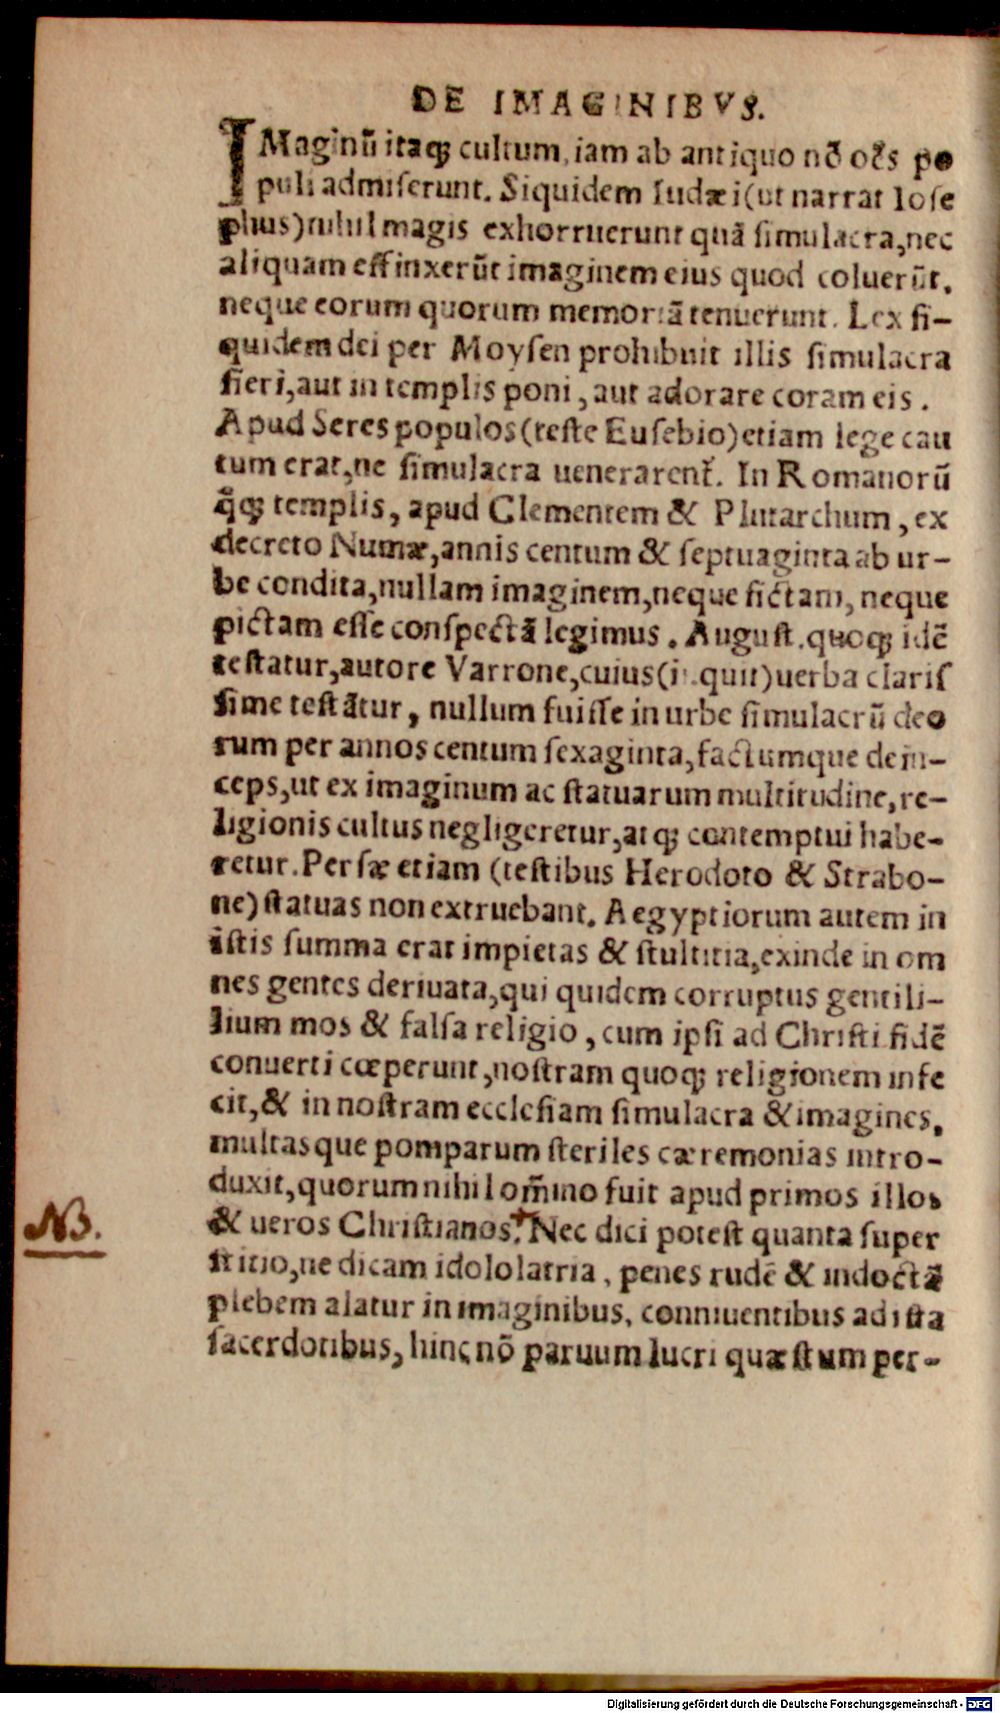 DE IMAGINIBVS.
IMaginũ itaqꝫ cultum, iam ab antiquo nõ oẽs po
puli admiserunt. Siquidem Iudæi (ut narrat Iose
phus) nihil magis exhorruerunt quã simulacra, nec
aliquam effinxerũt imaginem eius quod coluerũt.
neque eorum quorum memoriã tenuerunt. Lex si-
quidem dei per Moysen prohibuit illis simulacra
fieri, aut in templis poni, aut adorare coram eis.
Apud Seres populos (teste Eusebio) etiam lege cau
tum erat, ne simulacra uenerarent᷑. In Romanorũ
q̃qꝫ templis, apud Clementem & Plutarchum, ex
decreto Numæ, annis centum & septuaginta ab ur-
be condita, nullam imaginem, neque fictam, neque
pictam esse conspectã legimus. August. quoqꝫ idẽ
testatur, autore Varrone, cuius (inquit) uerba claris
sime testãtur, nullum fuisse in urbe simulacrũ deo
rum per annos centum sexaginta, factumque dein-
ceps, ut ex imaginum ac statuarum multitudine, re-
ligionis cultus negligeretur, atqꝫ contemptui habe-
retur. Persæ etiam (testibus Herodoto & Strabo-
ne) statuas non extruebant. Aegyptiorum autem in
istis summa erat impietas & stultitia, exinde in om
nes gentes deriuata, qui quidem corruptus gentili-
lium mos & falsa religio, cum ipsi ad Christi fidẽ
conuerti cœperunt, nostram quoqꝫ religionem infe
cit, & in nostram ecclesiam simulacra & imagines,
multasque pomparum steriles cæremonias intro-
duxit, quorum nihil om̃ino fuit apud primos illos
NB.
& ueros Christianos. Nec dici potest quanta super
stitio, ne dicam idololatria, penes rudẽ & indoctã
plebem alatur in imaginibus, conniuentibus ad ista
sacerdotibus, hinc nõ paruum lucri quæstum per-
Digitalisierung gefördert durch die Deutsche Forschungsgemeinschaft - DFG